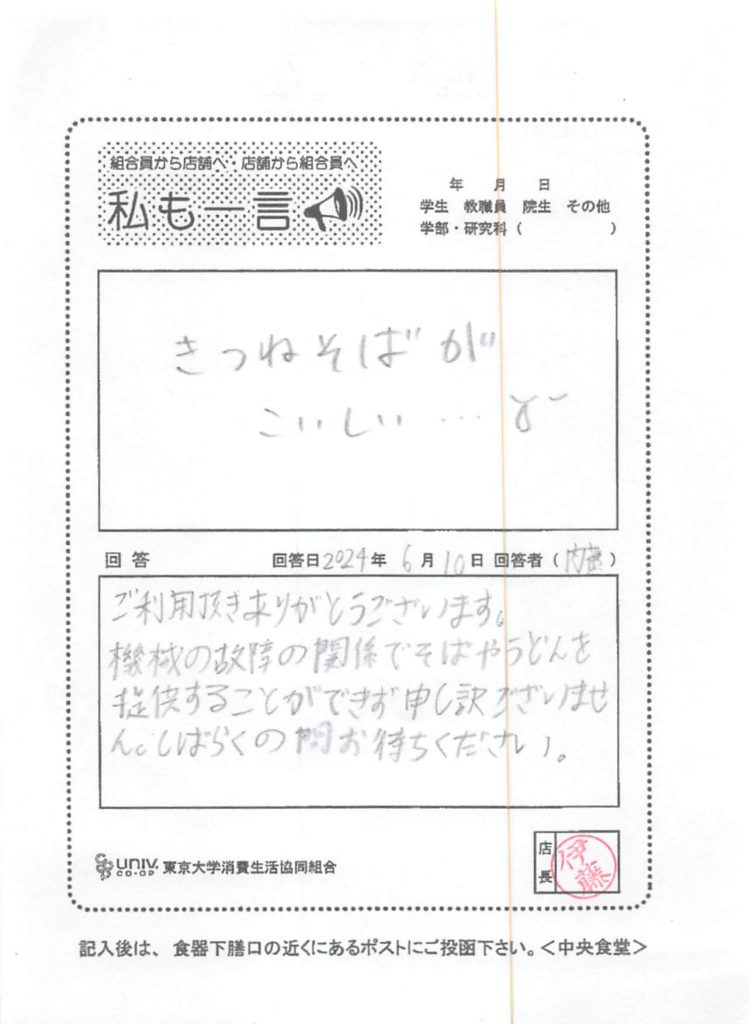 組合員から店舗へ・店舗から組合員へ
私も一言
年 月 日
学生 教職員 院生 その他
学部・研究科( )
きつねそばが
こいしい…
回答 回答日2024年 6月10日 回答者(内藤)
ご利用頂きありがとうございます。
機械の故障の関係でそばやうどんを
提供することができず申し訳ございませ
ん。しばらくの間お待ちください。
UNIV. CO-OP 東京大学消費生活協同組合
店長 伊藤
記入後は、食器下膳口の近くにあるポストにご投函下さい。<中央食堂>